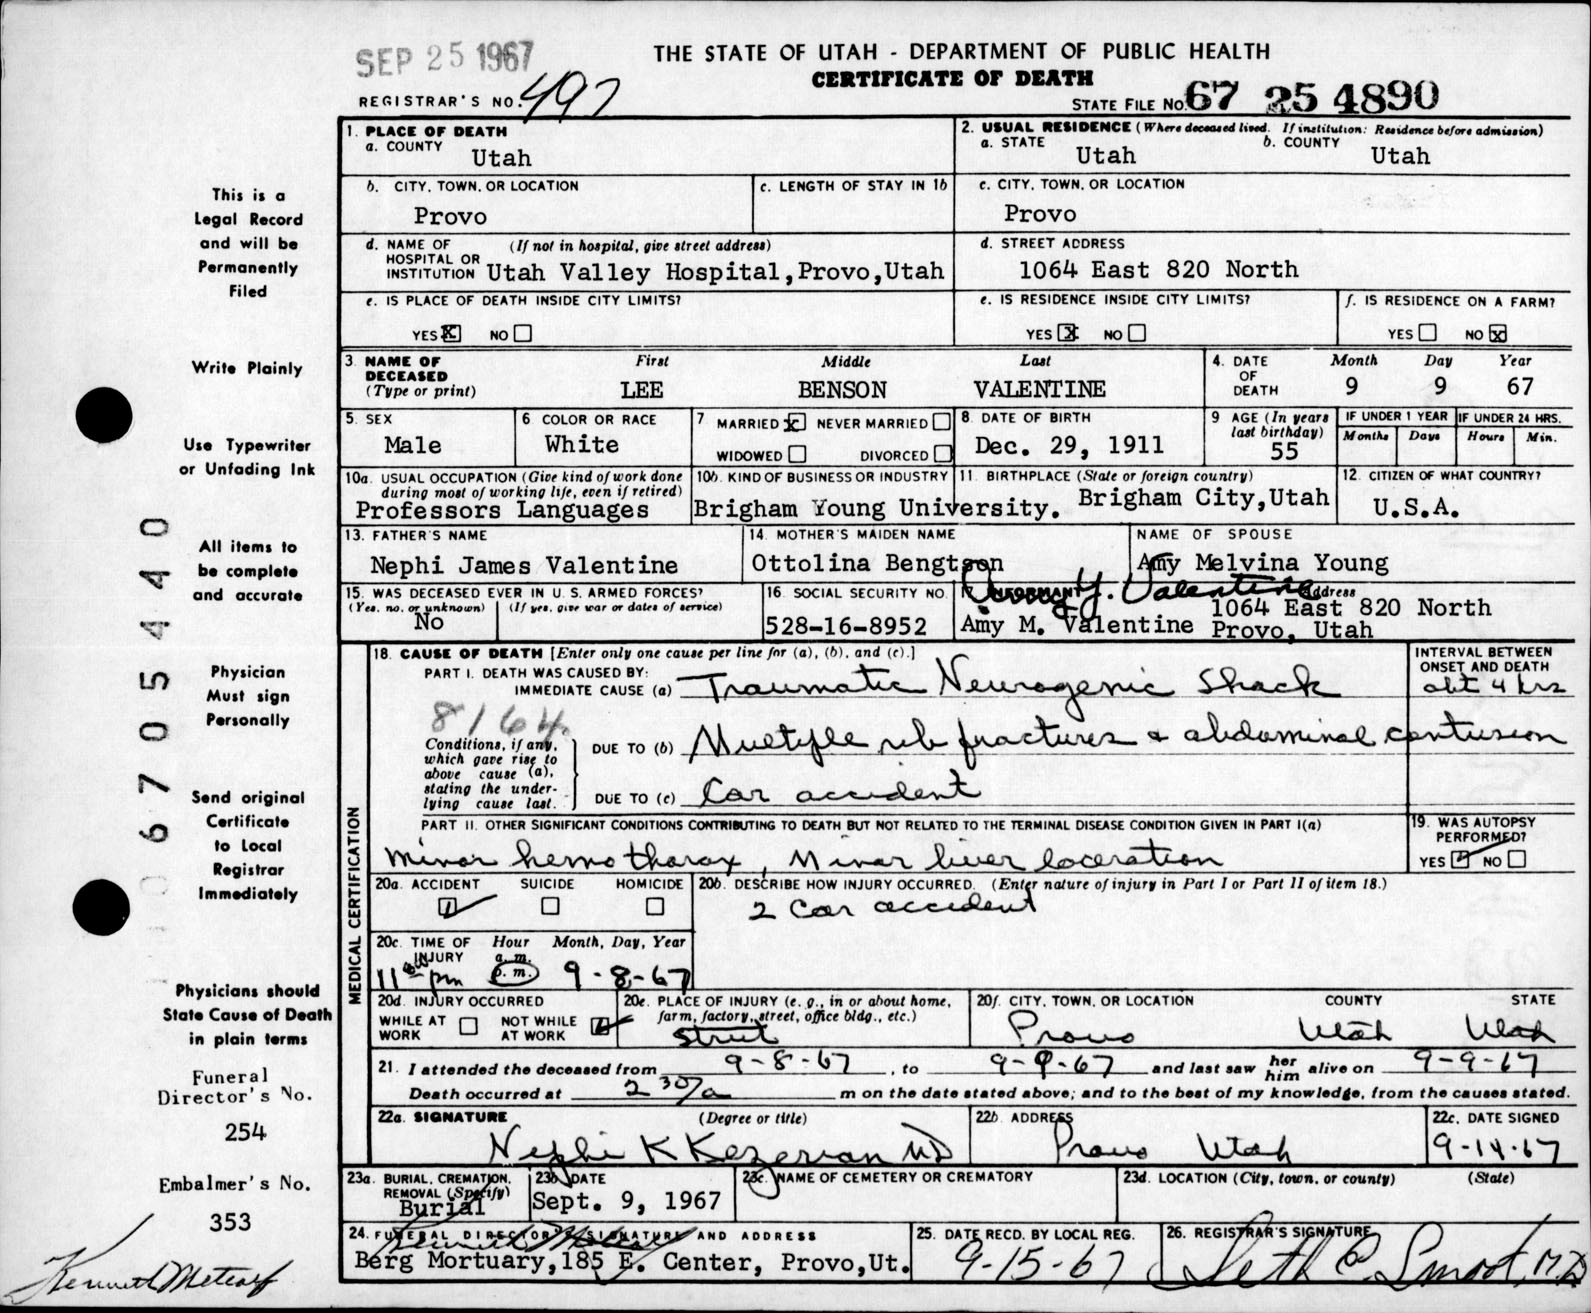 SEP 25 1967
THE STATE OF UTAH - DEPARTMENT OF PUBLIC HEALTH
CERTIFICATE OF DEATH
REGISTRAR'S NO. 497
STATE FILE NO. 67 25 4890
This is a
Legal Record
and will be
Permanently
Filed
Write Plainly
Use Typewriter
or Unfading Ink
All items to
be complete
and accurate
Physician
Must sign
Personally
Send original
Certificate
to Local
Registrar
Immediately
Physicians should
State Cause of Death
in plain terms
Funeral
Director's No.
254
Embalmer's No.
353
Kenneth Metcalf
067054440
1. PLACE OF DEATH
a. COUNTY
Utah
2. USUAL RESIDENCE (Where deceased lived. If institution: Residence before admission)
a. STATE
Utah
b. COUNTY
Utah
b. CITY, TOWN, OR LOCATION
Provo
c. LENGTH OF STAY IN 1b
c. CITY, TOWN, OR LOCATION
Provo
d. NAME OF (If not in hospital, give street address)
HOSPITAL OR
INSTITUTION Utah Valley Hospital, Provo, Utah
d. STREET ADDRESS
1064 East 820 North
e. IS PLACE OF DEATH INSIDE CITY LIMITS?
YES X NO
e. IS RESIDENCE INSIDE CITY LIMITS?
YES X NO
f. IS RESIDENCE ON A FARM?
YES NO X
3. NAME OF
DECEASED
(Type or print)
First Middle Last
LEE BENSON VALENTINE
4. DATE
OF
DEATH
Month Day Year
9 9 67
5. SEX
Male
6 COLOR OR RACE
White
7 MARRIED X NEVER MARRIED
WIDOWED DIVORCED
8 DATE OF BIRTH
Dec. 29, 1911
9 AGE (In years
last birthday)
55
IF UNDER 1 YEAR
Months Days
IF UNDER 24 HRS.
Hours Min.
10a. USUAL OCCUPATION (Give kind of work done
during most of working life, even if retired)
Professors Languages
10b. KIND OF BUSINESS OR INDUSTRY
Brigham Young University.
11. BIRTHPLACE (State or foreign country)
Brigham City, Utah
12. CITIZEN OF WHAT COUNTRY?
U.S.A.
13. FATHER'S NAME
Nephi James Valentine
14. MOTHER'S MAIDEN NAME
Ottolina Bengtson
NAME OF SPOUSE
Amy Melvina Young
15. WAS DECEASED EVER IN U.S. ARMED FORCES?
(Yes, no, or unknown) (If yes, give war or dates of service)
No
16. SOCIAL SECURITY NO.
528-16-8952
17. INFORMANT Address
Amy Y. Valentine
1064 East 820 North
Amy M. Valentine Provo, Utah
MEDICAL CERTIFICATION
18. CAUSE OF DEATH [Enter only one cause per line for (a), (b), and (c).]
INTERVAL BETWEEN
ONSET AND DEATH
PART I. DEATH WAS CAUSED BY:
IMMEDIATE CAUSE (a) Traumatic Neurogenic Shock abt 4 hrs
8164
Conditions, if any,
which gave rise to
above cause (a),
stating the under-
lying cause last.
DUE TO (b) Multiple rib fractures & abdominal contusion
DUE TO (c) Car accident
PART II. OTHER SIGNIFICANT CONDITIONS CONTRIBUTING TO DEATH BUT NOT RELATED TO THE TERMINAL DISEASE CONDITION GIVEN IN PART I(a)
Minor hemothorax, Minor liver laceration
19. WAS AUTOPSY
PERFORMED?
YES ✓ NO
20a. ACCIDENT SUICIDE HOMICIDE
✓
20b. DESCRIBE HOW INJURY OCCURRED. (Enter nature of injury in Part I or Part II of item 18.)
2 Car accident
20c. TIME OF Hour Month, Day, Year
INJURY a.m.
11 pm p.m. 9-8-67
20d. INJURY OCCURRED
WHILE AT NOT WHILE ✓
WORK AT WORK
20e. PLACE OF INJURY (e. g., in or about home,
farm, factory, street, office bldg., etc.)
Street
20f. CITY, TOWN, OR LOCATION COUNTY STATE
Provo Utah Utah
21. I attended the deceased from 9-8-67, to 9-9-67 and last saw her him alive on 9-9-67
Death occurred at 2 30/a m on the date stated above; and to the best of my knowledge, from the causes stated.
22a. SIGNATURE (Degree or title)
Nephi K Kezerian MD
22b. ADDRESS
Provo Utah
22c. DATE SIGNED
9-14-67
23a. BURIAL, CREMATION,
REMOVAL (Specify)
Burial
23b. DATE
Sept. 9, 1967
23c. NAME OF CEMETERY OR CREMATORY
23d. LOCATION (City, town, or county) (State)
24. FUNERAL DIRECTOR'S SIGNATURE AND ADDRESS
Kenneth Metcalf
Berg Mortuary, 185 E. Center, Provo, Ut.
25. DATE RECD. BY LOCAL REG.
9-15-67
26. REGISTRAR'S SIGNATURE
Seth E. Smoot, M.D.